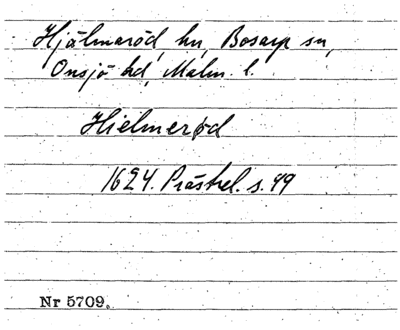 Hjälmaröd, hn, Bosarp sn,
Onsjö hd, Malm. l.
Hielmerød
1624. Prästrel. s. 49
Nr 5709.